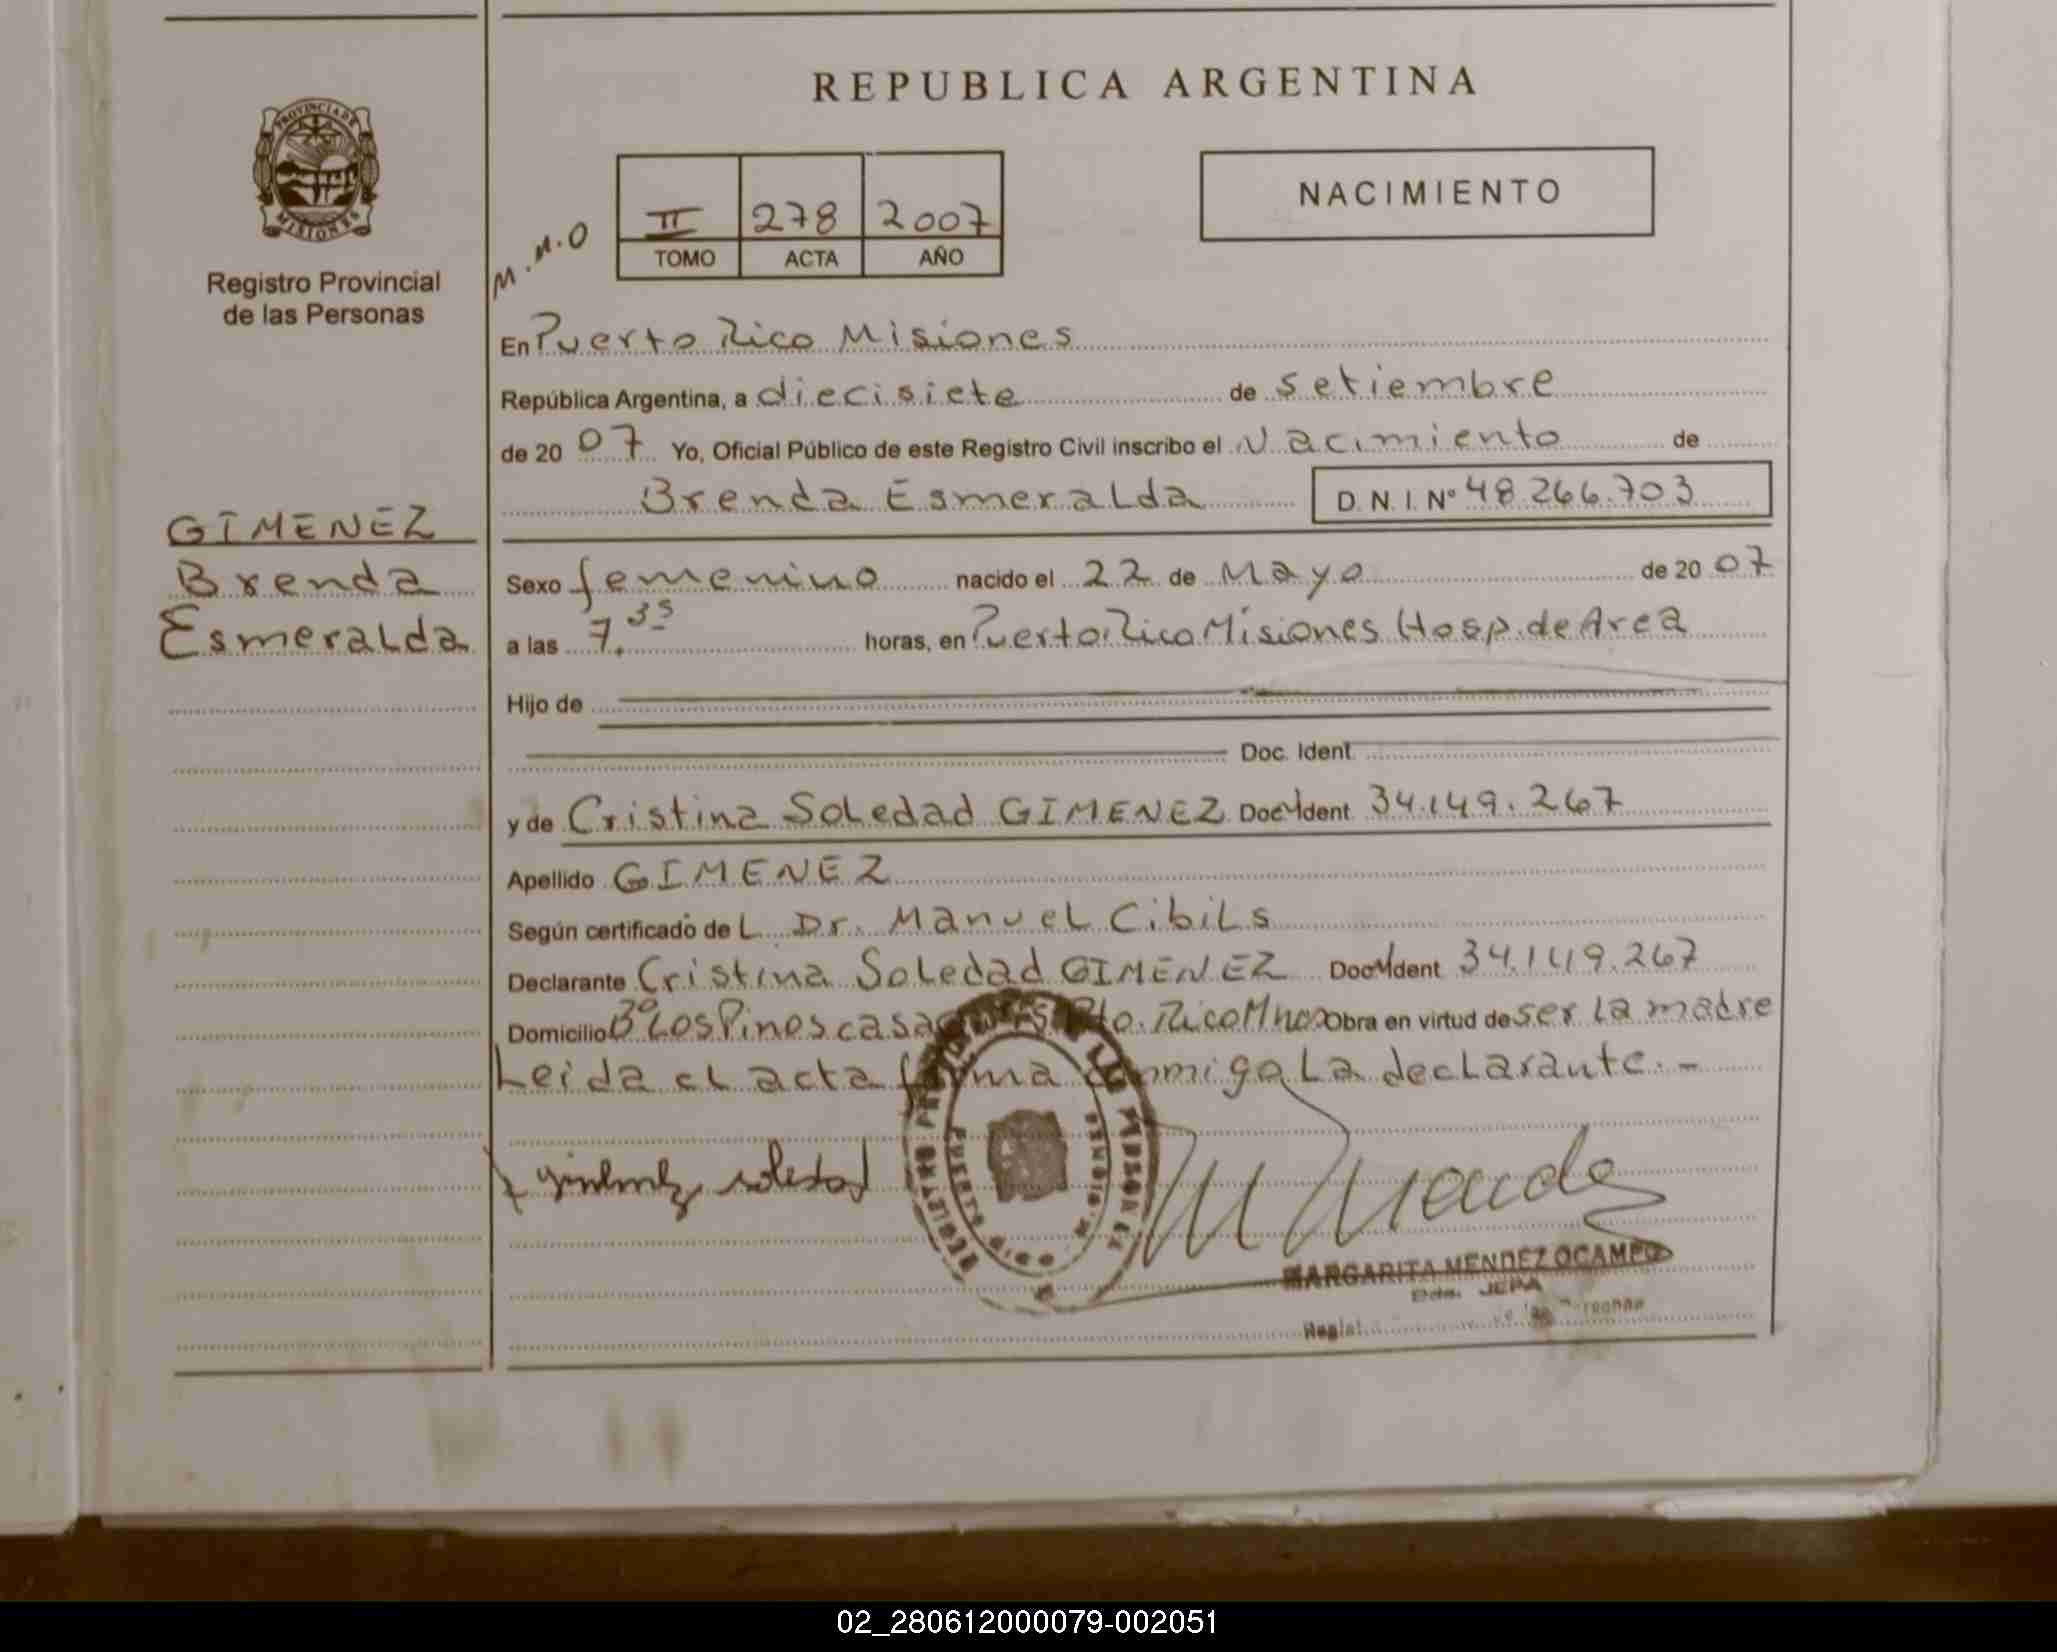 REPUBLICA ARGENTINA
PROVINCIA DE MISIONES
Registro Provincial
de las Personas
M.M.O
II 278 2007
TOMO ACTA AÑO
NACIMIENTO
En Puerto Rico Misiones
República Argentina, a diecisiete de setiembre
de 20 07 Yo, Oficial Público de este Registro Civil inscribo el Nacimiento de
Brenda Esmeralda D. N. I. Nº 48.266.703
GIMENEZ
Brenda
Esmeralda
Sexo femenino nacido el 22 de Mayo de 20 07
a las 7.35 horas, en Puerto Rico Misiones Hosp. de Area
Hijo de
Doc. Ident.
y de Cristina Soledad GIMENEZ Doc. Ident. 34.149.267
Apellido GIMENEZ
Según certificado de L Dr. Manuel Cibils
Declarante Cristina Soledad GIMENEZ Doc. Ident. 34.149.267
Domicilio Bº Los Pinos casa Pto. Rico Mnes Obra en virtud de ser la madre
Leida el acta firma conmigo La declarante.-
REGISTRO PROVINCIAL DE LAS PERSONAS
PUERTO RICO MISIONES
gimenez soledad
M Mendez
MARGARITA MENDEZ OCAMPO
JEFA
02_280612000079-002051